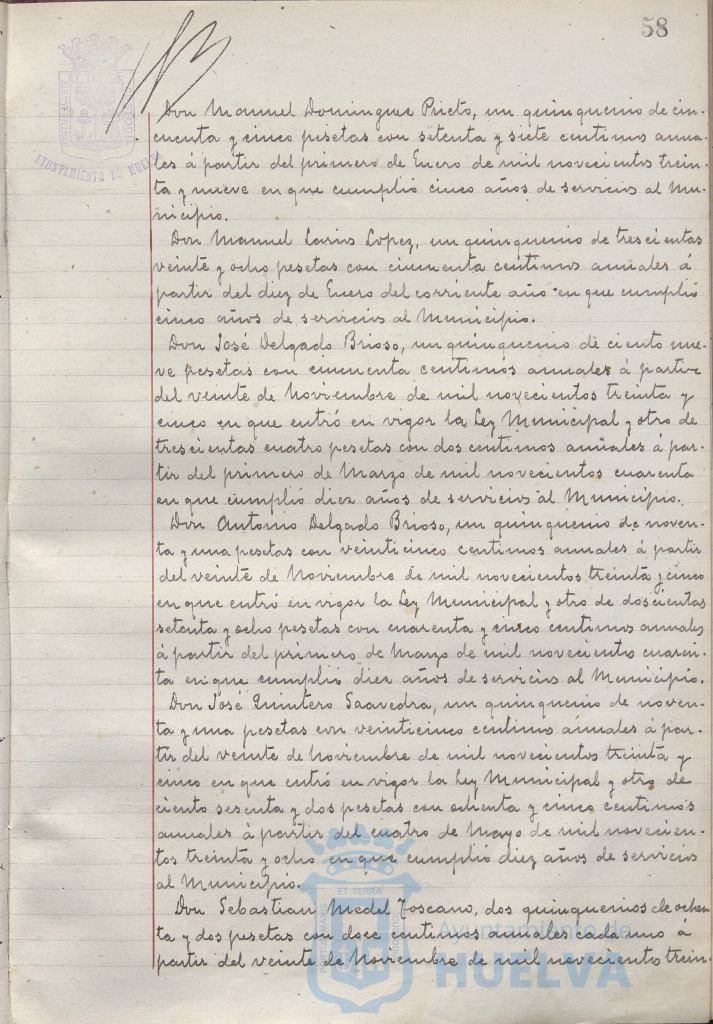 58
AYUNTAMIENTO DE HUELVA
Don Manuel Dominguez Prieto, un quinquenio de cin-
cuenta y cinco pesetas con setenta y siete centimos anua-
les á partir del primero de Enero de mil novecientos trein-
ta y nueve en que cumplió cinco años de servicios al Mu-
nicipio.
Don Manuel Larios Lopez, un quinquenio de trescientas
veinte y ocho pesetas con cincuenta centimos anuales á
partir del diez de Enero del corriente año en que cumplió
cinco años de servicios al Municipio.
Don José Delgado Brioso, un quinquenio de ciento nue-
ve pesetas con cincuenta centimos anuales á partir
del veinte de Noviembre de mil novecientos treinta y
cinco en que entró en vigor la Ley Municipal y otro de
trescientas cuatro pesetas con dos centimos anuales á par-
tir del primero de Marzo de mil novecientos cuarenta
en que cumplió diez años de servicios al Municipio.
Don Antonio Delgado Brioso, un quinquenio de noven-
ta y una pesetas con veinticinco centimos anuales á partir
del veinte de Noviembre de mil novecientos treinta y cinco
en que entró en vigor la Ley Municipal y otro de doscientas
setenta y ocho pesetas con cuarenta y cinco centimos anuales
á partir del primero de Marzo de mil novecientos cuaren-
ta en que cumplio diez años de servicios al Municipio.
Don José Quintero Saavedra, un quinquenio de noven-
ta y una pesetas con veinticinco centimos anuales á par-
tir del veinte de Noviembre de mil novecientos treinta y
cinco en que entró en vigor la Ley Municipal y otro de
ciento sesenta y dos pesetas con ochenta y cinco centimos
anuales á partir del cuatro de Mayo de mil novecien-
tos treinta y ocho en que cumplió diez años de servicios
al Municipio.
Don Sebastian Medel Toscano, dos quinquenios de ochen-
ta y dos pesetas con doce centimos anuales cada uno á
partir del veinte de Noviembre de mil novecientos trein-
ET TERRA
Ayuntamiento de
HUELVA